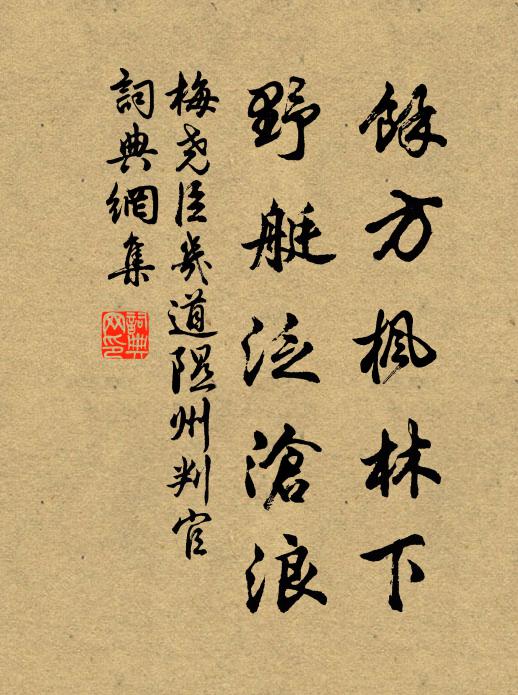 餘方楓林下
野艇泛滄浪
梅堯臣㡬道隰州判官
詞典網集
詞典網印